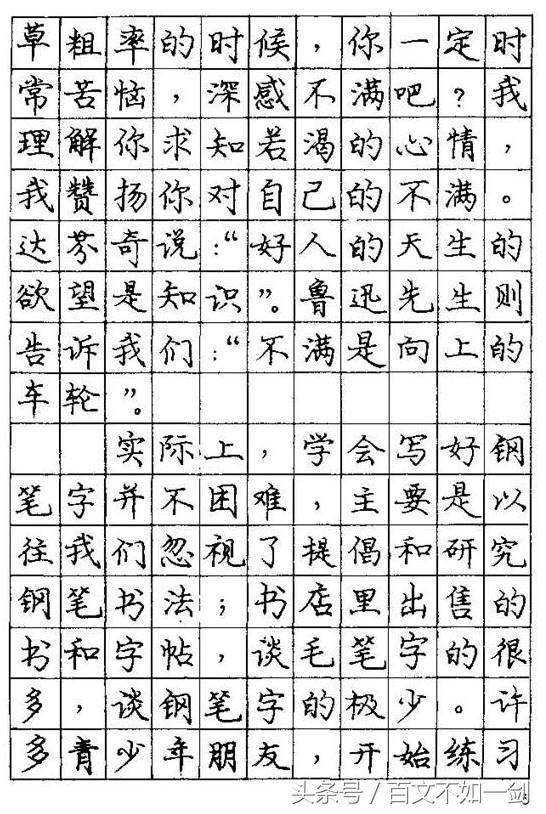 草粗率的时候，你一定时
常苦恼，深感不满吧？我
理解你求知若渴的心情，
我赞扬你对自己的不满。
达芬奇说：“好人的天生的
欲望是知识”。鲁迅先生则
告诉我们：“不满是向上的
车轮”。
实际上，学会写好钢
笔字并不困难，主要是以
往我们忽视了提倡和研究
钢笔书法；书店里出售的
书和字帖，谈毛笔字的很
多，谈钢笔字的极少。许
多青少年朋友，开始练习
头条号／百文不如一剑
5